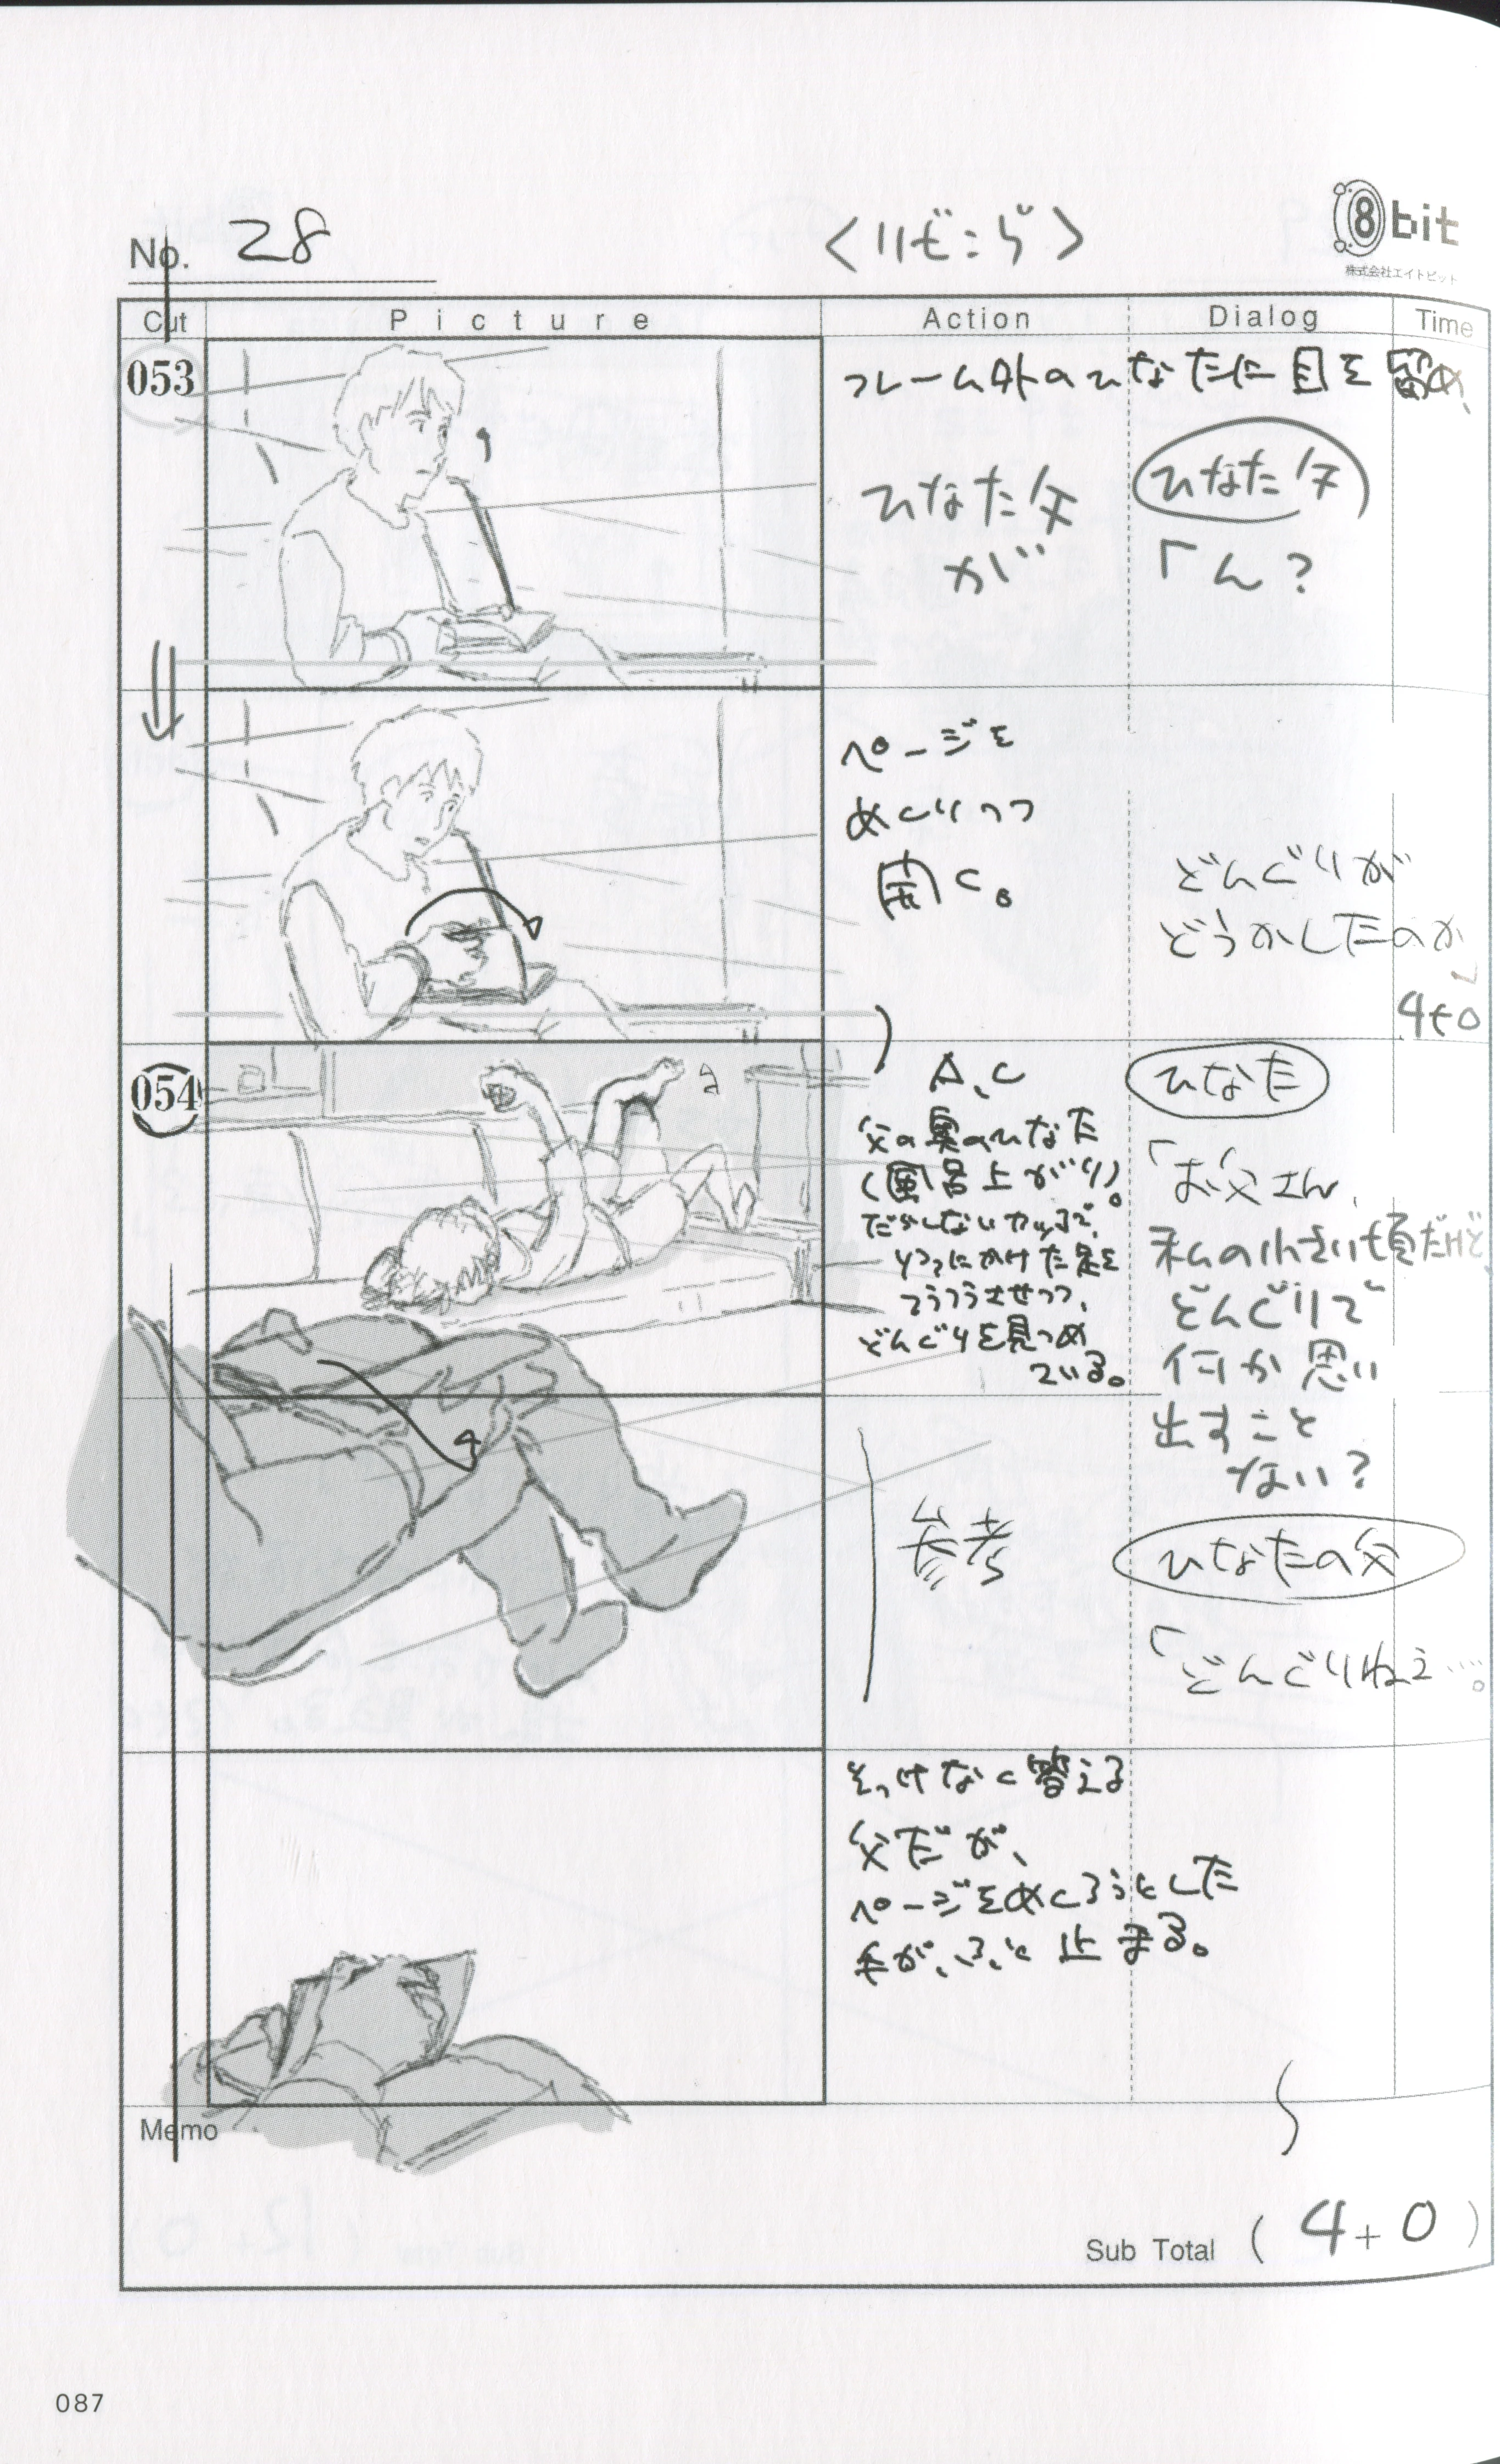 No. 28
<リビング>
8bit
株式会社エイトビット
Cut
Picture
Action
Dialog
Time
053
フレーム外のひなたに目を留め、
ひなた父
が
ひなた父
「ん?
ページを
めくりつつ
聞く。
どんぐりが
どうかしたのか
」
4+0
054
A.C
父の奥のひなた
(風呂上がり)。
だらしないカッコで、
ソファにかけた足を
ぶらぶらさせつつ、
どんぐりを見つめ
ている。
ひなた
「お父さん、
私の小さい頃だけど、
どんぐりで
何か思い
出すこと
ない?
参考
ひなたの父
「どんぐりねえ…。
そっけなく答える
父だが、
ページをめくろうとした
手が、ふと止まる。
Memo
Sub Total ( 4+0 )
087